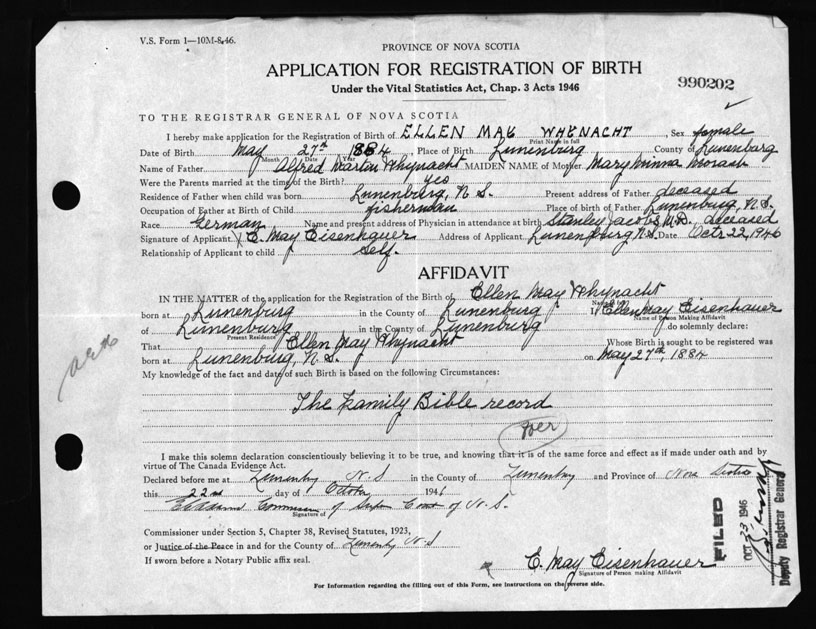 V.S. Form 1—10M-8-46.
PROVINCE OF NOVA SCOTIA
APPLICATION FOR REGISTRATION OF BIRTH
990202
Under the Vital Statistics Act, Chap. 3 Acts 1946
TO THE REGISTRAR GENERAL OF NOVA SCOTIA
I hereby make application for the Registration of Birth of ELLEN MAY WHYNACHT, Sex female
Print Name in full
Date of Birth May 27th 1884, Place of Birth Lunenburg County of Lunenburg
Month Date Year
Name of Father Alfred Martin Whynacht MAIDEN NAME of Mother Mary Minna Morash
Were the Parents married at time of the Birth? yes
Residence of Father when child was born Lunenburg, N.S. Present address of Father deceased
Occupation of Father at Birth of Child fisherman Place of birth of Father Lunenburg, N.S.
Race German Name and present address of Physician in attendance at birth Stanley Jacobs M.D. deceased
Signature of Applicant X E. May Eisenhauer Address of Applicant Lunenburg N.S. Date Octr 22, 1946
Relationship of Applicant to child Self.
AFFIDAVIT
IN THE MATTER of the application for the Registration of the Birth of Ellen May Whynacht
Name in full
born at Lunenburg in the County of Lunenburg I, Ellen May Eisenhauer
Name of Person Making Affidavit
of Lunenburg in the County of Lunenburg do solemnly declare:
Present Residence
That Ellen May Whynacht Whose Birth is sought to be registered was
born at Lunenburg, N.S. on May 27th, 1884
My knowledge of the fact and date of such Birth is based on the following Circumstances:
The family Bible record
I make this solemn declaration conscientiously believing it to be true, and knowing that it is of the same force and effect as if made under oath and by
virtue of The Canada Evidence Act.
Declared before me at Lunenburg N.S in the County of Lunenburg and Province of Nova Scotia
this 22nd day of October 1946
Commissioner of Supr Court of N.S.
Signature of
Commissioner under Section 5, Chapter 38, Revised Statutes, 1923,
or Justice of the Peace in and for the County of Lunenburg N.S
If sworn before a Notary Public affix seal.
E. May Eisenhauer
Signature of Person making Affidavit
For Information regarding the filling out of this Form, see instructions on the reverse side.
FILED
OCT 23 1946
Deputy Registrar General